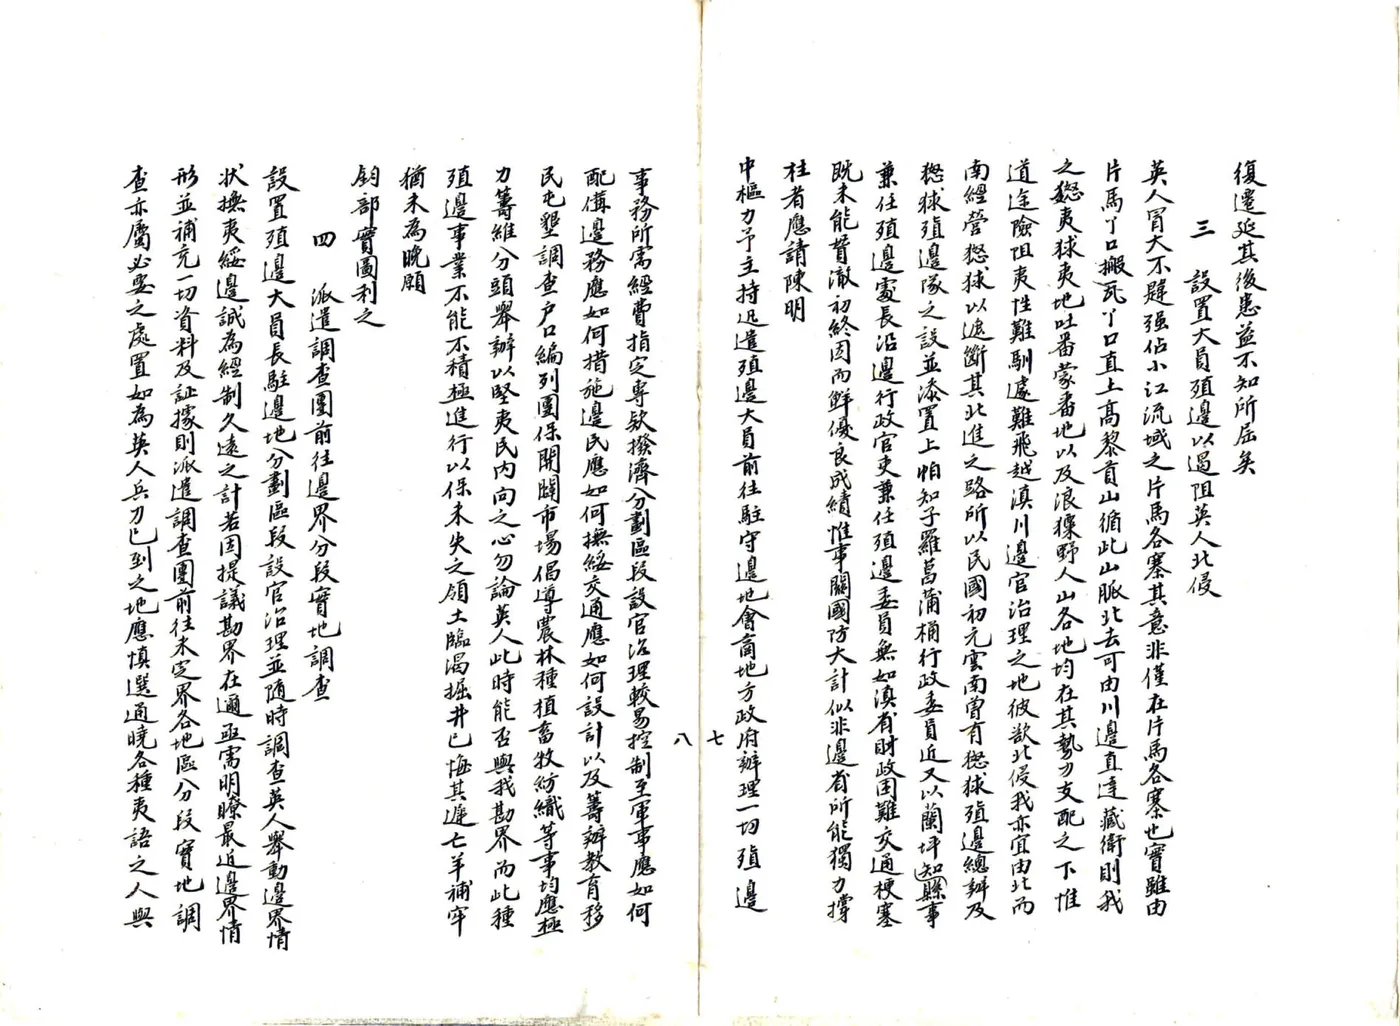 復遷延其後患益不知所屆矣
三 設置大員殖邊以遏阻英人北侵
英人冒大不韙强佔小江流域之片馬各寨其意非僅在片馬各寨也實雖由
片馬丫口搬瓦丫口直上高黎貢山循此山脈北去可由川邊直達藏衛則我
之怒夷狖夷地吐番蒙番地以及浪㺐野人山各地均在其勢力支配之下惟
道途險阻夷性難馴處難飛越滇川邊官治理之地彼欲北侵我亦宜由北而
南經營怒狖以遮斷其北進之路所以民國初元雲南曾有怒狖殖邊總辦及
怒狖殖邊隊之設並添置上帕知子羅菖蒲桶行政委員近又以蘭坪知縣事
兼任殖邊處長沿邊行政官吏兼任殖邊委員無如滇省財政困難交通梗塞
既未能貫澈初終因而鮮優良成績惟事關國防大計似非邊省所能獨力撐
柱者應請陳明
中樞力予主持迅遣殖邊大員前往駐守邊地會商地方政府辦理一切殖邊
七
八
事務所需經費指定專欵撥濟分劃區段設官治理較易控制至軍事應如何
配備邊務應如何措施邊民應如何撫綏交通應如何設計以及籌辦教育移
民屯墾調查户口編列團保開闢市場倡導農林種植畜牧紡織等事均應極
力籌維分頭舉辦以堅夷民內向之心勿論英人此時能否與我勘界而此種
殖邊事業不能不積極進行以保未失之領土臨渴掘井已悔其遲亡羊補牢
猶未為晚願
鈞部實圖利之
四 派遣調查團前往邊界分段實地調查
設置殖邊大員長駐邊地分劃區段設官治理並隨時調查英人舉動邊界情
狀撫夷綏邊誠為經制久遠之計若因提議勘界在邇亟需明瞭最近邊界情
形並補充一切資料及証據則派遣調查團前往未定界各地區分段實地調
查亦屬必要之處置如為英人兵力已到之地應慎選通曉各種夷語之人與